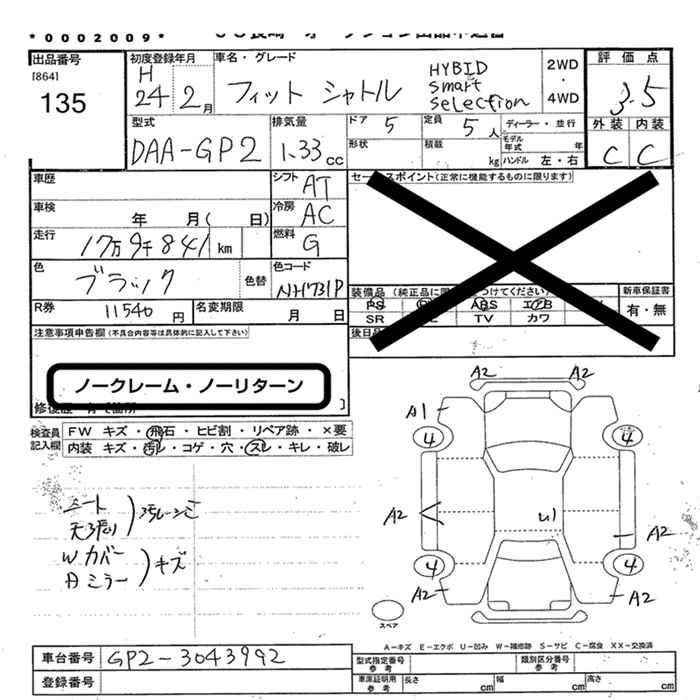 *0002009*
出品番号
[864]
135
初度登録年月
H
24 2月
車名・グレード
フィット シャトル
HYBID
smart
selection
2WD
・
4WD
評価点
3.5
外装 内装
C C
型式
DAA-GP2
排気量
1.33cc
ドア 5
形状
定員 5人
積載 kg
ディーラー・並行
モデル年式 年
ハンドル 左・右
車歴
車検 年 月( 日)
走行 17万9千841km
色 ブラック
色替
色コード
NH731P
R券 11540円
名変期限 月 日
シフト AT
冷房 AC
燃料 G
セー スポイント(正常に機能するものに限ります)
装備品(純正品に限 つけてください)
PS ABS エアB
SR TV カワ
新車保証書
有・無
後日
注意事項申告欄(不具合内容等は具体的に記入して下さい)
ノークレーム・ノーリターン
検査員
記入欄
FW キズ・飛石・ヒビ割・リペア跡・×要
内装 キズ・汚レ・コゲ・穴・スレ・キレ・破レ
シート
天張り
汚レ
Wカバー
Aミラー
キズ
A2 A2
A1
4 4
A2
U1
A2
4 4
A2
A2
スペア
A-キズ E-エクボ U-凹み W-補修跡 S-サビ C-腐食 XX-交換済
車台番号 GP2-3043992
登録番号
型式指定番号
参考
類別区分番号
参考
車庫証明用
参考
長さ cm 幅 cm 高さ cm